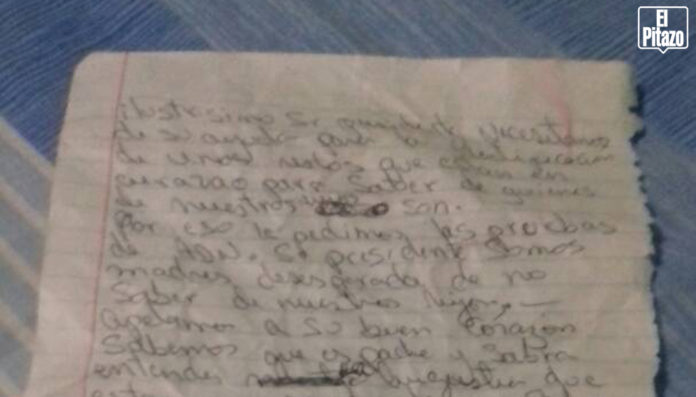 El
Pitazo
ilustrisimo Sr presidente necesitamos
de su ayuda para la identificacion
de unos restos que estan en
curazao para saber de quienes
de nuestros son.
Por eso le pedimos las pruebas
de ADN. Sr presidente somos
madres desesperada de no
saber de nuestros hijos, —
apelamos a su buen corazon
sabemos que es padre y sabra
entender angustia que